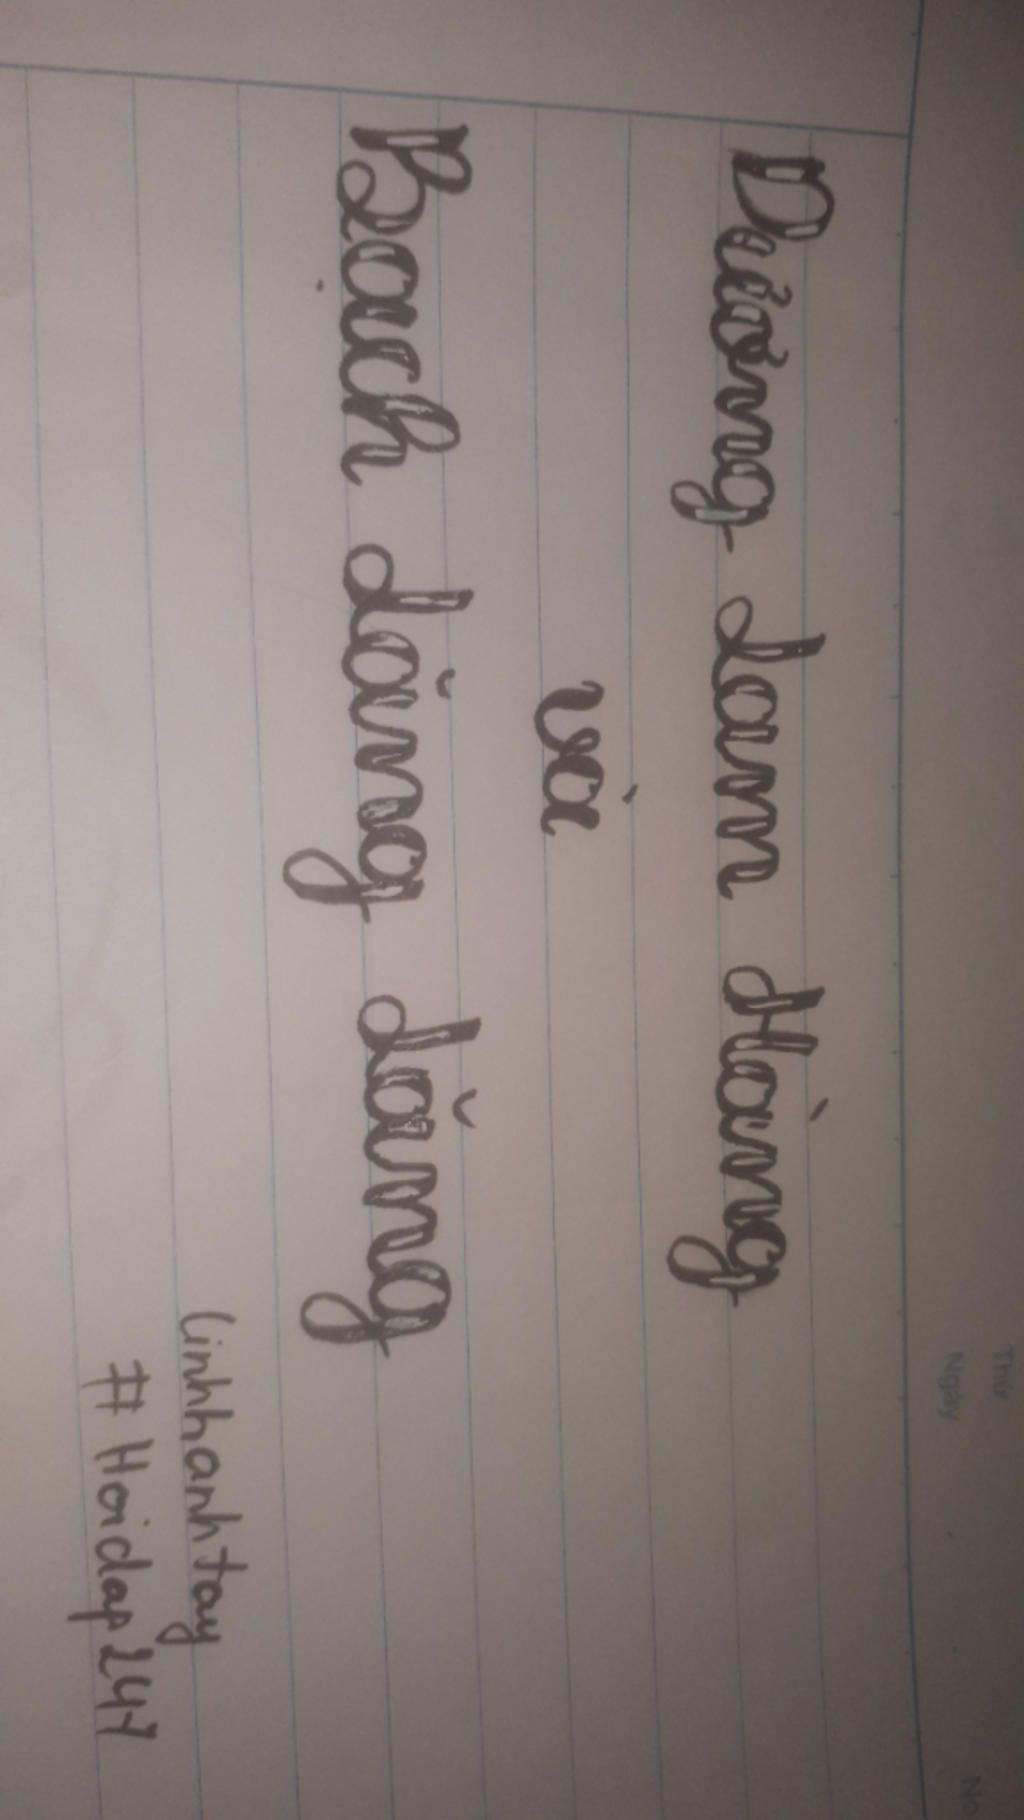 Thứ
Ngày
No
Dương Lam Hàng
và
Bạch Lăng Lăng
linhhanhtay
# Hoidap247